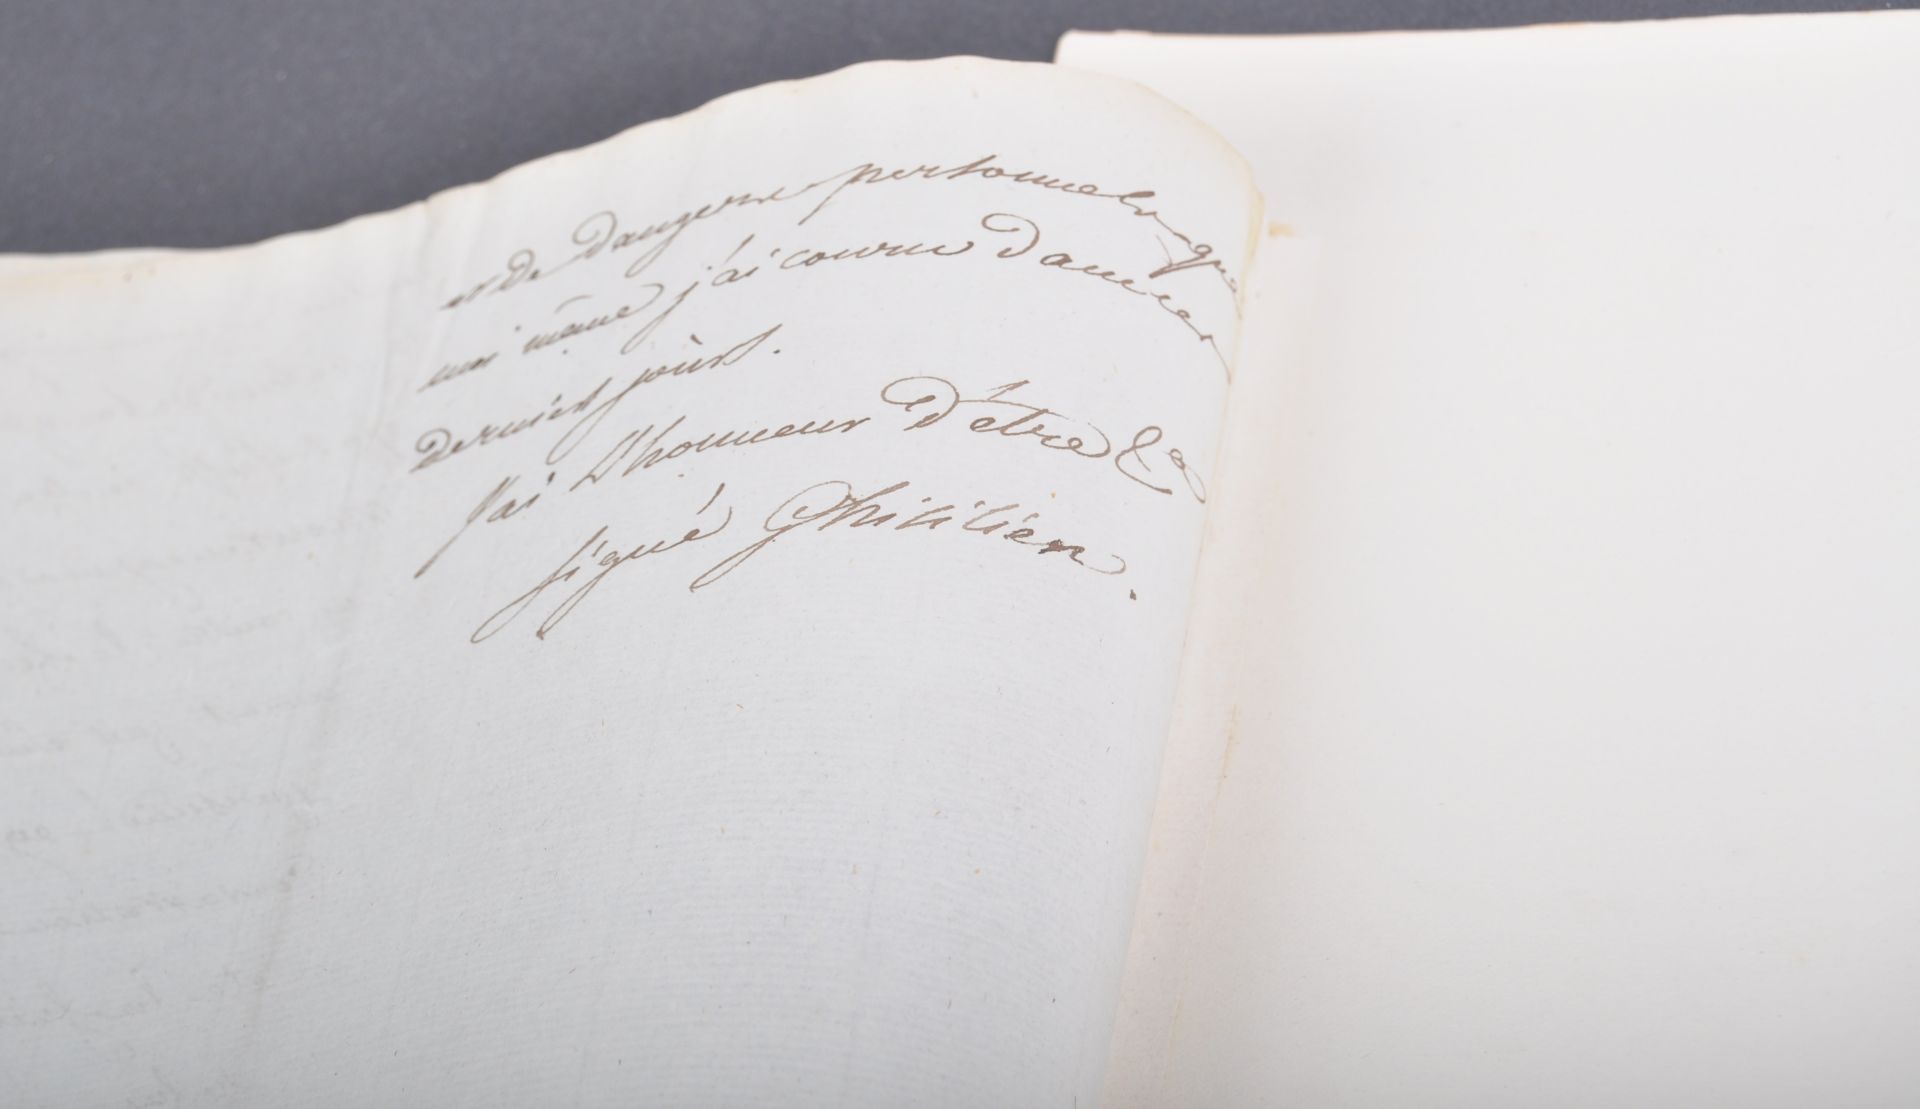 et de dangers personnels que
moi même j'ai courru dans ces
derniers jours.
J'ai L'honneur d'être &a
signé Ghisilieri.